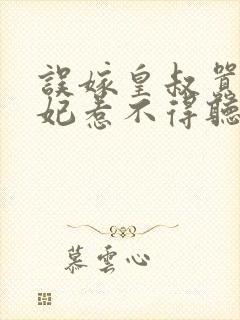 誤嫁皇叔
妃惹不得聽
慕雲心